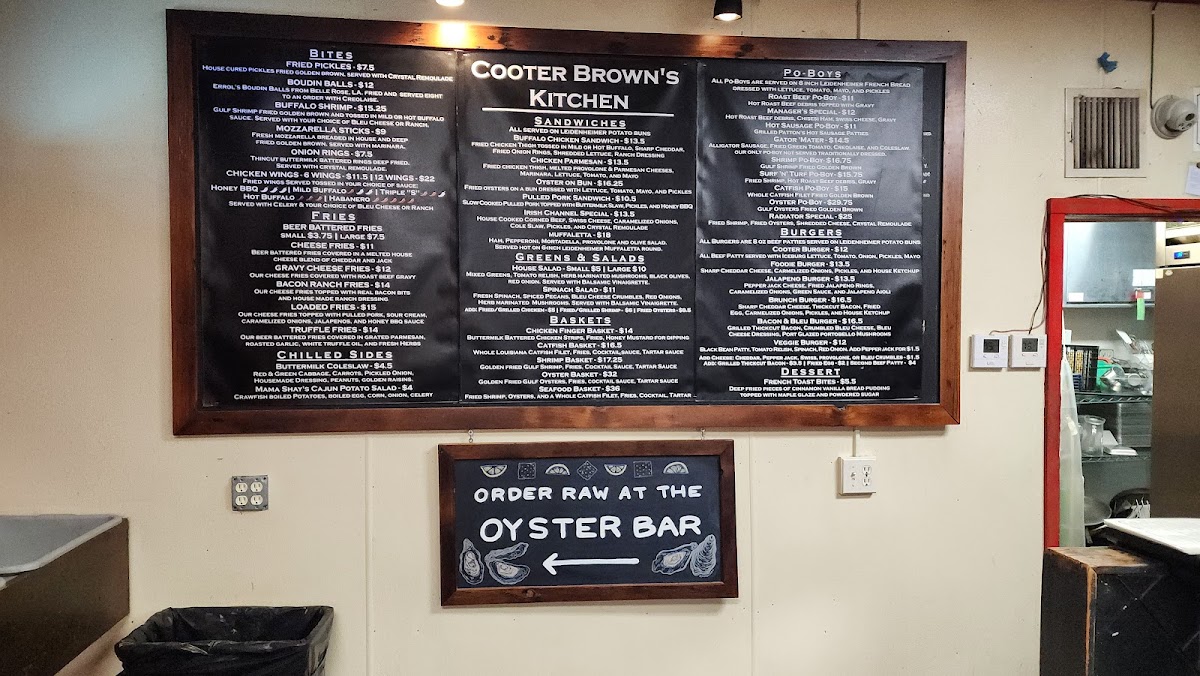 Bites
Fried Pickles - $7.5
House cured pickles fried golden brown, served with Crystal Remoulade
Boudin Balls - $12
Errol's Boudin Balls from Belle Rose, LA. Fried and served eight
to an order with Creolaise.
Buffalo Shrimp - $15.25
Gulf Shrimp fried golden brown and tossed in mild or hot buffalo
sauce. Served with your choice of Bleu Cheese or Ranch.
Mozzarella Sticks - $9
Fresh mozzarella breaded in house and deep
fried golden brown. served with marinara.
Onion Rings - $7.5
Thincut buttermilk battered rings deep fried.
Served with Crystal remoulade.
Chicken Wings - 6 Wings - $11.5 | 12 Wings - $22
Fried wings served tossed in your choice of sauce:
Honey BBQ | Mild Buffalo | Triple "S"
Hot Buffalo | Habanero
Served with Celery & your choice of Bleu Cheese or Ranch
Fries
Beer Battered Fries
Small $3.75 | Large $7.5
Cheese Fries - $11
Beer battered fries covered in a melted house
cheese blend of cheddar and jack
Gravy Cheese Fries - $12
Our cheese fries covered with roast beef gravy
Bacon Ranch Fries - $14
Our cheese fries topped with real bacon bits
and house made ranch dressing.
Loaded Fries - $15
Our cheese fries topped with pulled pork, sour cream,
caramelized onions, jalapenos, and honey BBQ sauce
Truffle Fries - $14
Our beer battered fries covered in grated parmesan,
roasted garlic, white truffle oil, and fresh herbs
Chilled Sides
Buttermilk Coleslaw - $4.5
Red & Green Cabbage, Carrots, Pickled Onion,
Housemade Dressing, peanuts, golden raisins.
Mama Shay's Cajun Potato Salad - $4
Crawfish boiled Potatoes, boiled egg, corn, onion, celery
Cooter Brown's
Kitchen
Sandwiches
All served on Leidenheimer potato buns
Buffalo Chicken Sandwich - $13.5
Fried Chicken Thigh tossed in Mild or Hot Buffalo, Sharp Cheddar,
Fried Onion Rings, Shredded Lettuce, Ranch Dressing
Chicken Parmesan - $13.5
Fried chicken thigh, melted provolone & Parmesan Cheeses,
Marinara, Lettuce, Tomato, and Mayo
Oyster on Bun - $16.25
Fried oysters on a bun dressed with Lettuce, Tomato, Mayo, and Pickles
Pulled Pork Sandwich - $10.5
Slow Cooked Pulled Pork topped with Buttermilk Slaw, Pickles, and Honey BBQ
Irish Channel Special - $13.5
House Cooked Corned Beef, Swiss Cheese, Caramelized Onions,
Cole Slaw, Pickles, and Crystal Remoulade
Muffaletta - $18
Ham, Pepperoni, Mortadella, provolone and olive salad.
Served hot on 6inch leidenheimer Muffaletta round.
Greens & Salads
House Salad - Small $5 | Large $10
Mixed Greens, Tomato relish, herb marinated mushrooms, black olives,
red onion. Served with Balsamic Vinaigrette.
Spinach Salad - $11
Fresh Spinach, Spiced Pecans, Bleu Cheese Crumbles, Red Onions,
Herb marinated Mushrooms. Served with Balsamic Vinaigrette.
Add: Fried/Grilled Chicken - $5 | Fried/Grilled Shrimp - $6 | Fried Oysters - $8.5
Baskets
Chicken Finger Basket - $14
Buttermilk Battered Chicken Strips, Fries, Honey Mustard for dipping
Catfish Basket - $16.5
Whole Louisiana Catfish Filet, Fries, Cocktail sauce, Tartar sauce
Shrimp Basket - $17.25
Golden Fried Gulf Shrimp, Fries, cocktail sauce, Tartar sauce
Oyster Basket - $32
Golden Fried Gulf Oysters, Fries, cocktail sauce, Tartar sauce
Seafood Basket - $36
Fried Shrimp, Oysters, and a Whole Catfish Filet, Fries, Cocktail, Tartar
Po-Boys
All Po-Boys are served on 8 inch Leidenheimer French Bread
dressed with lettuce, tomato, mayo, and pickles
Roast Beef Po-Boy - $11
Hot Roast Beef debris topped with Gravy
Manager's Special - $12
Hot Roast Beef debris, Chisesi Ham, swiss cheese, gravy
Hot Sausage Po-Boy - $11
Grilled Patton's Hot Sausage Patties
Gator 'Mater - $14.5
Alligator Sausage, Fried Green Tomato, Creolaise, and Coleslaw.
our only po-boy not served traditionally dressed.
Shrimp Po-Boy - $16.75
Gulf Shrimp Fried Golden Brown
Surf 'n' Turf Po-Boy - $15.75
Fried Shrimp, Hot Roast Beef Debris, Gravy
Catfish Po-Boy - $15
Whole Catfish Filet Fried Golden Brown
Oyster Po-Boy - $29.75
Gulf Oysters Fried Golden Brown
Radiator Special - $25
Fried Shrimp, Fried Oysters, Shredded Cheese, Crystal Remoulade
Burgers
All Burgers are 8 oz beef patties served on Leidenheimer potato buns
Cooter Burger - $12
All Beef Patty served with Iceburg Lettuce, Tomato, Onion, Pickles, Mayo
Foodie Burger - $13.5
Sharp Cheddar Cheese, Carmelized Onions, Pickles, and House Ketchup
Jalapeno Burger - $13.5
Pepper Jack Cheese, Fried Jalapeno Rings,
Caramelized Onions, Green Sauce, and Jalapeno Aioli
Brunch Burger - $16.5
Sharp Cheddar Cheese, Thickcut Bacon, Fried
Egg, Carmelized Onions, Pickles, and House Ketchup
Bacon & Bleu Burger - $16.5
Grilled Thickcut Bacon, Crumbled Bleu Cheese, Bleu
Cheese Dressing, Port Glazed Portobello Mushrooms
Veggie Burger - $12
Black Bean Patty, Tomato Relish, Spinach, Red Onion. Add Pepper Jack for $1.5
Add Cheese: Cheddar, Pepper Jack, Swiss, Provolone, or Bleu Crumbles - $1.5
Add: Grilled Thickcut Bacon - $3.5 | Fried Egg - $2 | Second Beef Patty - $4
Dessert
French Toast Bites - $5.5
Deep fried pieces of cinnamon vanilla bread pudding
topped with maple glaze and powdered sugar
ORDER RAW AT THE
OYSTER BAR